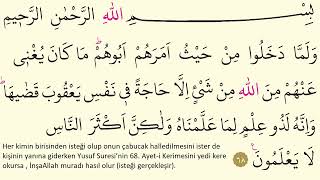 بِسْمِ اللهِ الرَّحْمٰنِ الرَّحِيمِ
وَلَمَّا دَخَلُوا مِنْ حَيْثُ اَمَرَهُمْ اَبُوهُمْ ۜ مَا كَانَ يُغْنٖى
عَنْهُمْ مِنَ اللهِ مِنْ شَىْءٍ اِلَّا حَاجَةً فٖى نَفْسِ يَعْقُوبَ قَضٰيهَا ۜ
وَاِنَّهُ لَذُو عِلْمٍ لِمَا عَلَّمْنَاهُ وَلٰكِنَّ اَكْثَرَ النَّاسِ
لَا يَعْلَمُونَ ۟ ٦٨
Her kimin birisinden isteği olup onun çabucak halledilmesini ister de
kişinin yanına giderken Yusuf Suresi'nin 68. Ayet-i Kerimesini yedi kere
okursa , İnşaAllah muradı hasıl olur (isteği gerçekleşir).